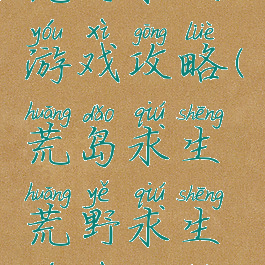 yóu xì gōng lüè
游戏攻略(
huāng dǎo qiú shēng
荒岛求生
huāng yě qiú shēng
荒野求生